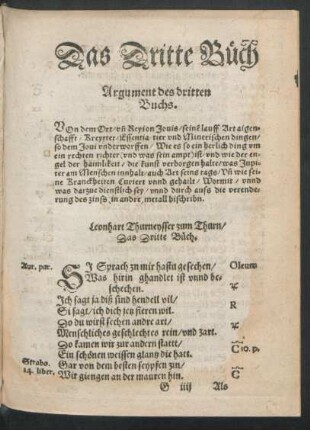 Das Dritte Bůch
Argument des dritten
Buchs.
VOn dem Ort/ vñ Region Jouis/ seinē lauff Art aigen-
schafft/ Kreyter/ Essentia tier vnd Minerischen dingen/
so dem Joui vnderworffen/ Wie es so ein herlich ding vm
ein rechten richter/ vnd was sein ampt ist/ vnd wie der en-
gel der hämlikeit/ die kunst verborgen halte/ was Jupiter
am Menschen innhalt/ auch Art seins tags/ Vñ wie seine
Kranckheiten Curiert vnnd gehailt/ Wormit/ vnnd
was darzue dienstlich sey/ vnnd durch auß die verende-
rung des zinß/ in andre metall bischeidn.
Leonhart Thurneysser zum Thurn/
Das Dritte Bůch.
SI Sprach zu mir hastu gesechen/
Was hirin ghandlet ist vnnd be-
schechen.
Ich sagt ja diß sind hendell vil/
Si sagt/ ich dich leu fieren wil.
Do du wirst sechen andre art/
Menschliches geschlechtes rein/ vnd zart.
Do kamen wir zur andern statt/
Ein schönen weissen glantz die hatt.
Strabo.
14. liber.
Gar von dem besten seyffen zin/
Wir giengen an der mauren hin.
Oleum
R
C 10. p.
C
G iiij Als